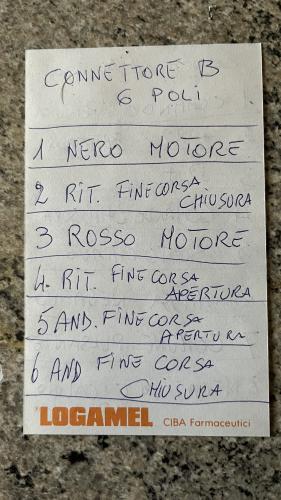 CONNETTORE B
6 POLI
1 NERO MOTORE
2 RIT. FINECORSA
CHIUSURA
3 ROSSO MOTORE.
4. RIT. FINECORSA
APERTURA
5 AND. FINECORSA
APERTURA
6 AND FINE CORSA
CHIUSURA
LOGAMEL CIBA Farmaceutici